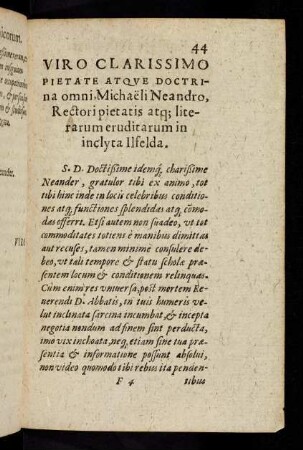 44
VIRO CLARISSIMO
PIETATE ATQVE DOCTRI-
na omni, Michaëli Neandro,
Rectori pietatis atq; lite-
rarum eruditarum in
inclyta Ilfelda.
S. D. Doctißime idemq́; charißime
Neander, gratulor tibi ex animo, tot
tibi hinc inde in locis celebribus conditio-
nes atq́; functiones splendidas atq́; cõmo-
das offerri. Etsi autem non suadeo, vt tot
commoditates toties è manibus dimittas
aut recuses, tamen minimè consulere de-
beo, vt tali tempore & statu scholæ præ-
sentem locum & conditionem relinquas.
Cùm enim res vniuersa, post mortem Re-
uerendi D. Abbatis, in tuis humeris ve-
lut inclinata sarcina incumbat, & incepta
negotia nondum ad finem sint perducta,
imò vix inchoata, neq́; etiam sine tua præ-
sentia & informatione possunt absolui,
non video quomodo tibi rebus ita penden-
F 4
tibus